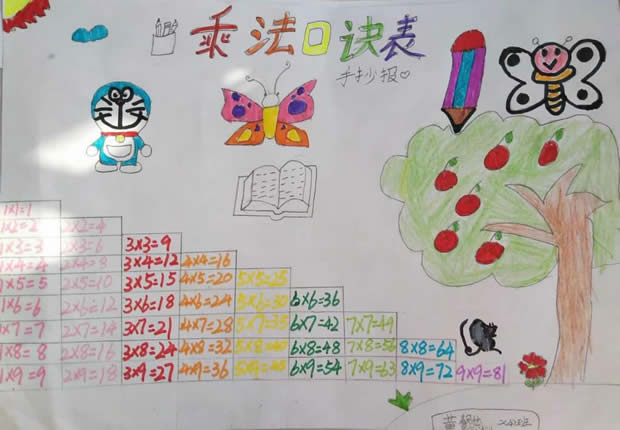 乘法口诀表
手抄报
1×1=1
1×2=2 2×2=4
1×3=3 2×3=6 3×3=9
1×4=4 2×4=8 3×4=12 4×4=16
1×5=5 2×5=10 3×5=15 4×5=20 5×5=25
1×6=6 2×6=12 3×6=18 4×6=24 5×6=30 6×6=36
1×7=7 2×7=14 3×7=21 4×7=28 5×7=35 6×7=42 7×7=49
1×8=8 2×8=16 3×8=24 4×8=32 5×8=40 6×8=48 7×8=56 8×8=64
1×9=9 2×9=18 3×9=27 4×9=36 5×9=45 6×9=54 7×9=63 8×9=72 9×9=81